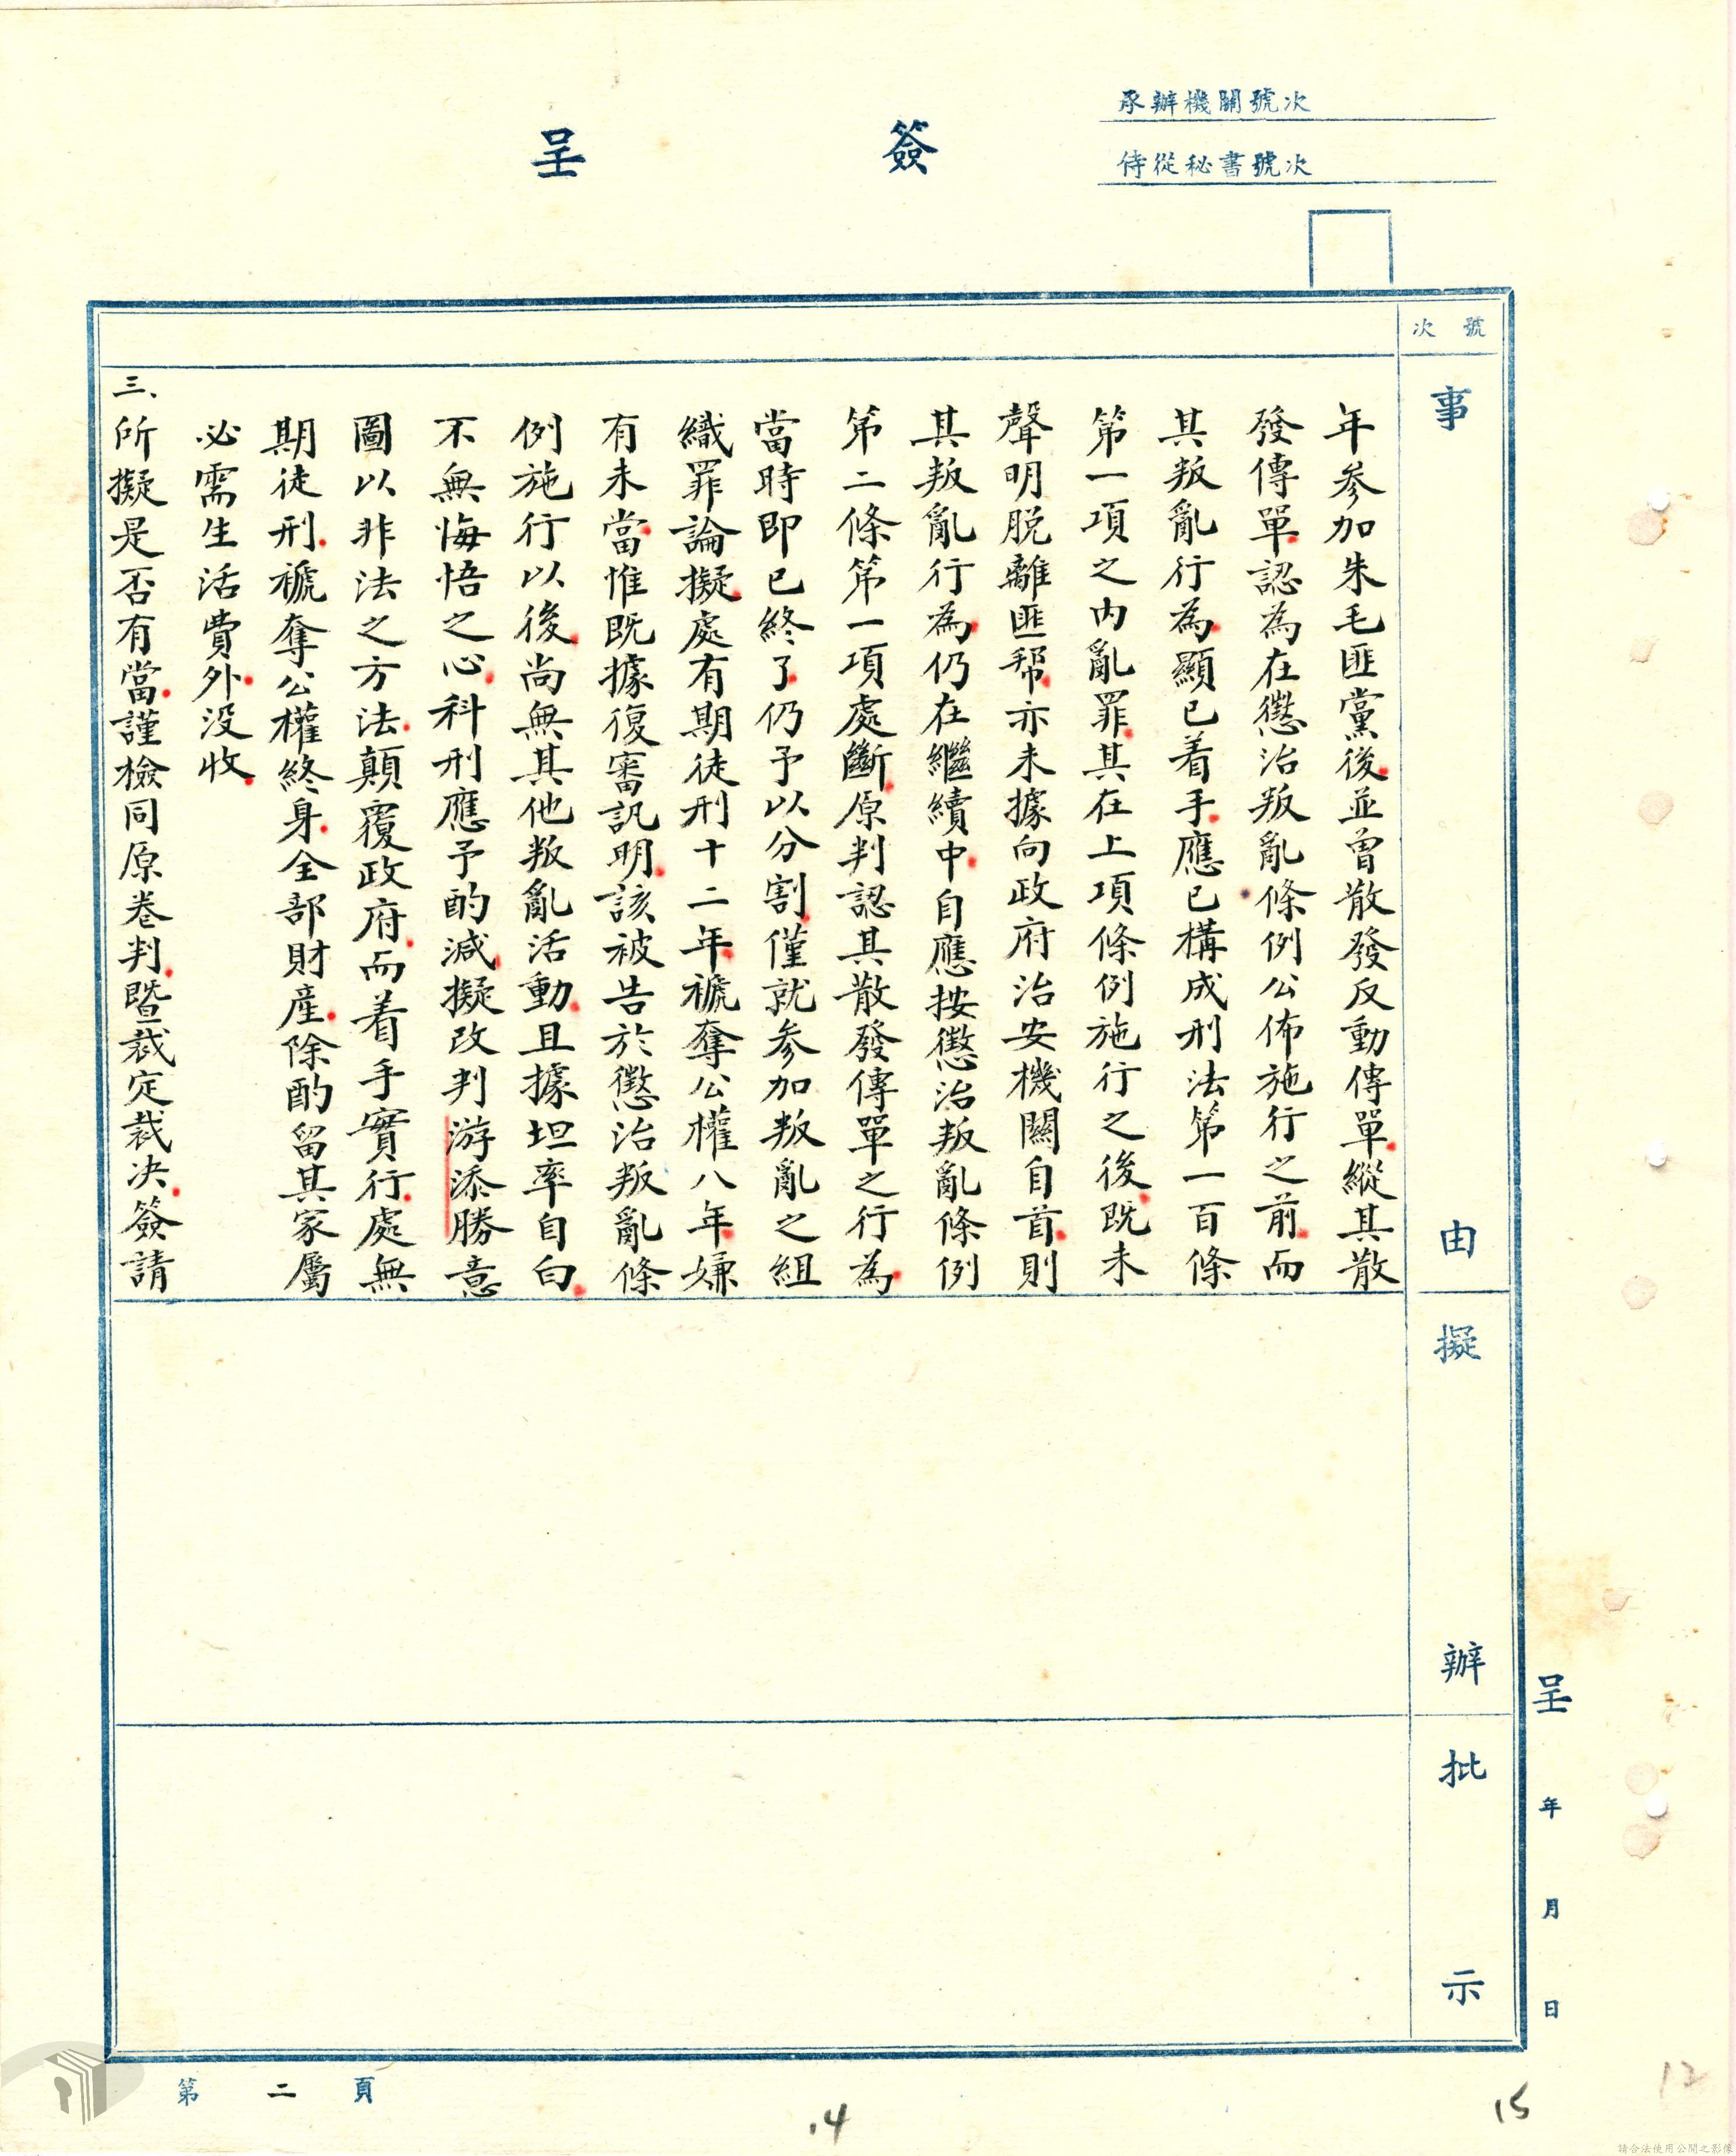 承辦機關號次
侍從秘書號次
簽呈
號次
事由
年參加朱毛匪黨後並曾散發反動傳單縱其散
發傳單認為在懲治叛亂條例公佈施行之前而
其叛亂行為顯已着手應已構成刑法第一百條
第一項之內亂罪其在上項條例施行之後既未
聲明脫離匪幫亦未據向政府治安機關自首則
其叛亂行為仍在繼續中自應按懲治叛亂條例
第二條第一項處斷原判認其散發傳單之行為
當時即已終了仍予以分割僅就參加叛亂之組
織罪論擬處有期徒刑十二年褫奪公權八年嫌
有未當惟既據復審訊明該被告於懲治叛亂條
例施行以後尚無其他叛亂活動且據坦率自白
不無悔悟之心科刑應予酌減擬改判游添勝意
圖以非法之方法顛覆政府而着手實行處無
期徒刑褫奪公權終身全部財產除酌留其家屬
必需生活費外沒收
三、所擬是否有當謹檢同原卷判暨裁定裁決簽請
擬辦
批示
呈 年 月 日
第二頁
14
15
12
請合法使用公開之影像